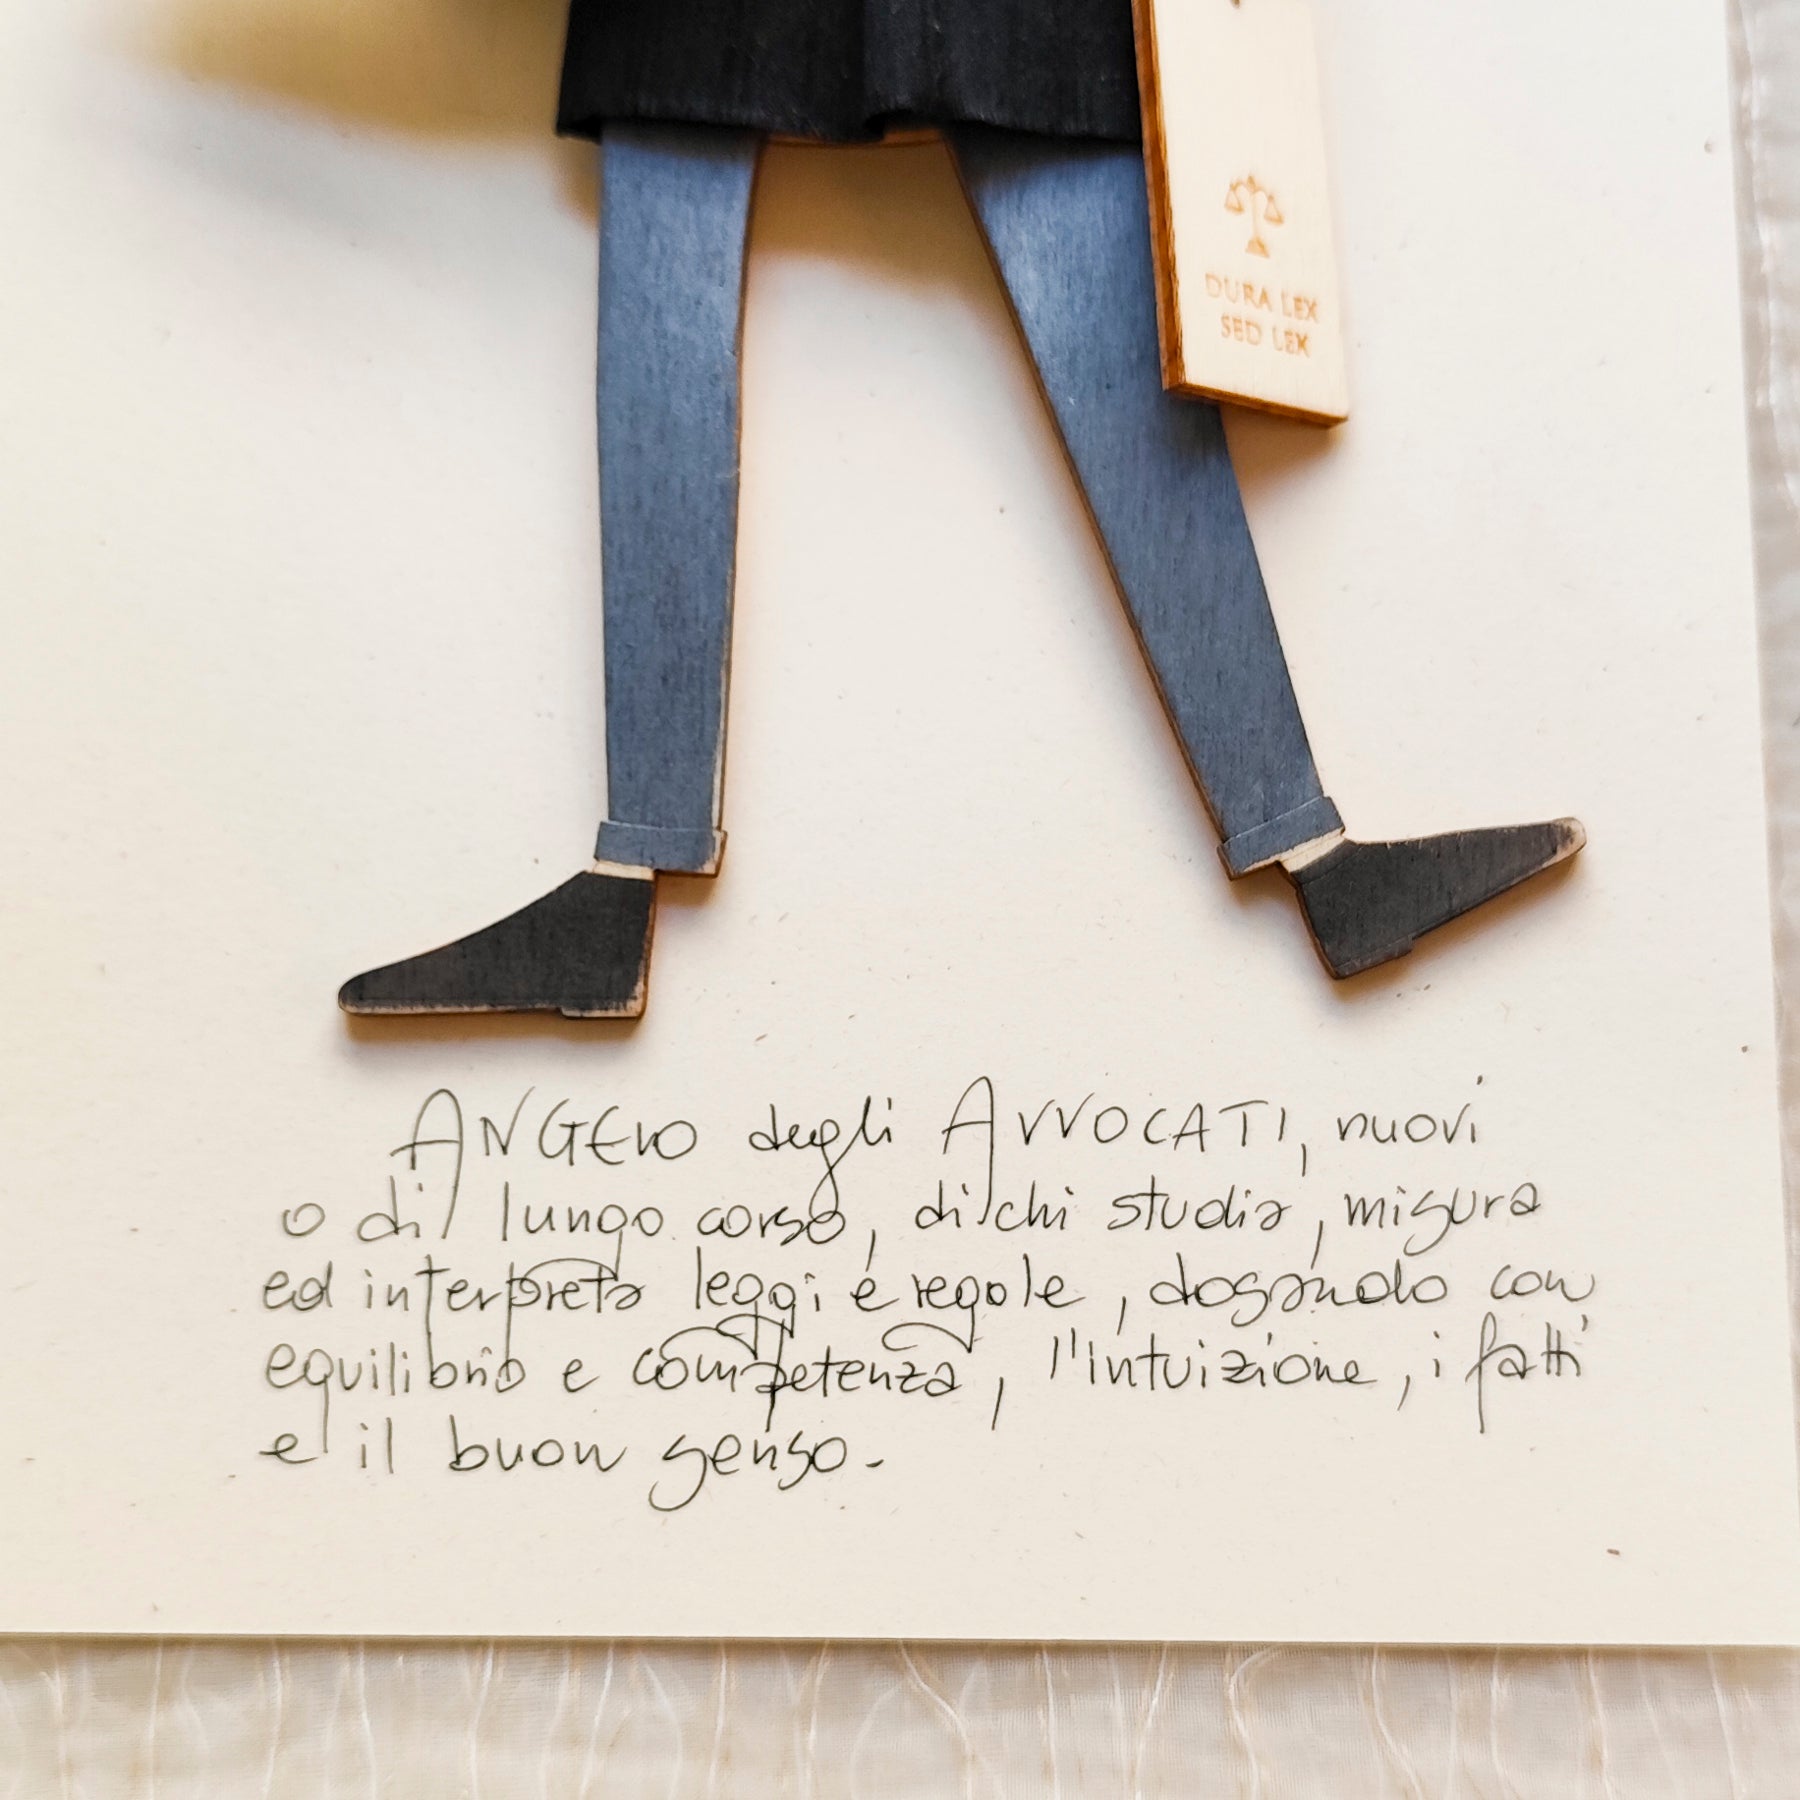 DURA LEX
SED LEX
ANGELO degli AVVOCATI, nuovi
o di lungo corso, di chi studia, misura
ed interpreta leggi e regole, dosando con
equilibrio e competenza, l'intuizione, i fatti
e il buon senso.